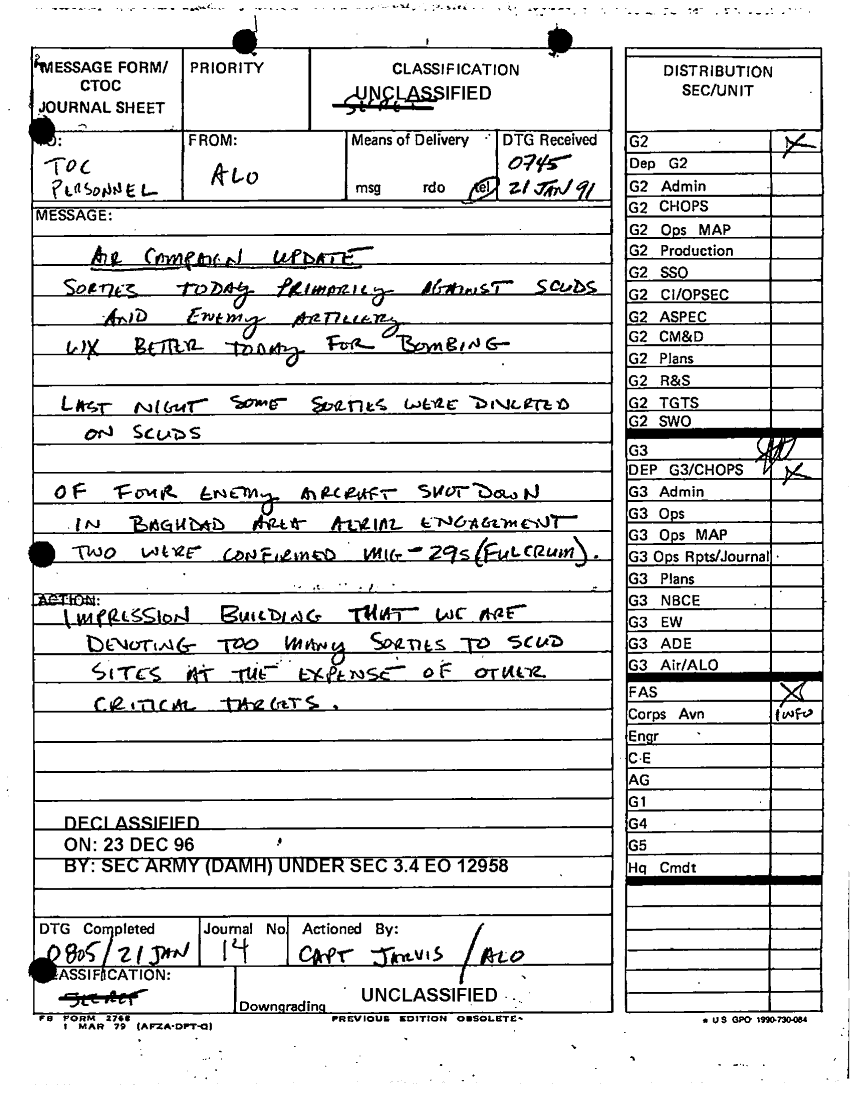 MESSAGE FORM/
CTOC
JOURNAL SHEET
PRIORITY
CLASSIFICATION
UNCLASSIFIED
SECRET
TO:
TOC
PERSONNEL
FROM:
ALO
Means of Delivery
msg rdo tel
DTG Received
0745
21 JAN 91
MESSAGE:
AIR CAMPAIGN UPDATE
SORTIES TODAY PRIMARILY AGAINST SCUDS
AND ENEMY ARTILLERY
WX BETTER TODAY FOR BOMBING
LAST NIGHT SOME SORTIES WERE DIVERTED
ON SCUDS
OF FOUR ENEMY AIRCRAFT SHOT DOWN
IN BAGHDAD AREA AERIAL ENGAGEMENT
TWO WERE CONFIRMED MIG-29s (FULCRUM).
ACTION:
IMPRESSION BUILDING THAT WE ARE
DEVOTING TOO MANY SORTIES TO SCUD
SITES AT THE EXPENSE OF OTHER
CRITICAL TARGETS.
DECLASSIFIED
ON: 23 DEC 96
BY: SEC ARMY (DAMH) UNDER SEC 3.4 EO 12958
DTG Completed
0805/21 JAN
Journal No.
14
Actioned By:
CAPT JARVIS / ALO
CLASSIFICATION:
SECRET
Downgrading
UNCLASSIFIED
FB FORM 2768
1 MAR 79 (AFZA-DPT-O)
PREVIOUS EDITION OBSOLETE
DISTRIBUTION
SEC/UNIT
G2 X
Dep G2
G2 Admin
G2 CHOPS
G2 Ops MAP
G2 Production
G2 SSO
G2 CI/OPSEC
G2 ASPEC
G2 CM&D
G2 Plans
G2 R&S
G2 TGTS
G2 SWO
G3
DEP G3/CHOPS X
G3 Admin
G3 Ops
G3 Ops MAP
G3 Ops Rpts/Journal
G3 Plans
G3 NBCE
G3 EW
G3 ADE
G3 Air/ALO
FAS X
Corps Avn INFO
Engr
C-E
AG
G1
G4
G5
Hq Cmdt
* U S GPO 1990-730-084